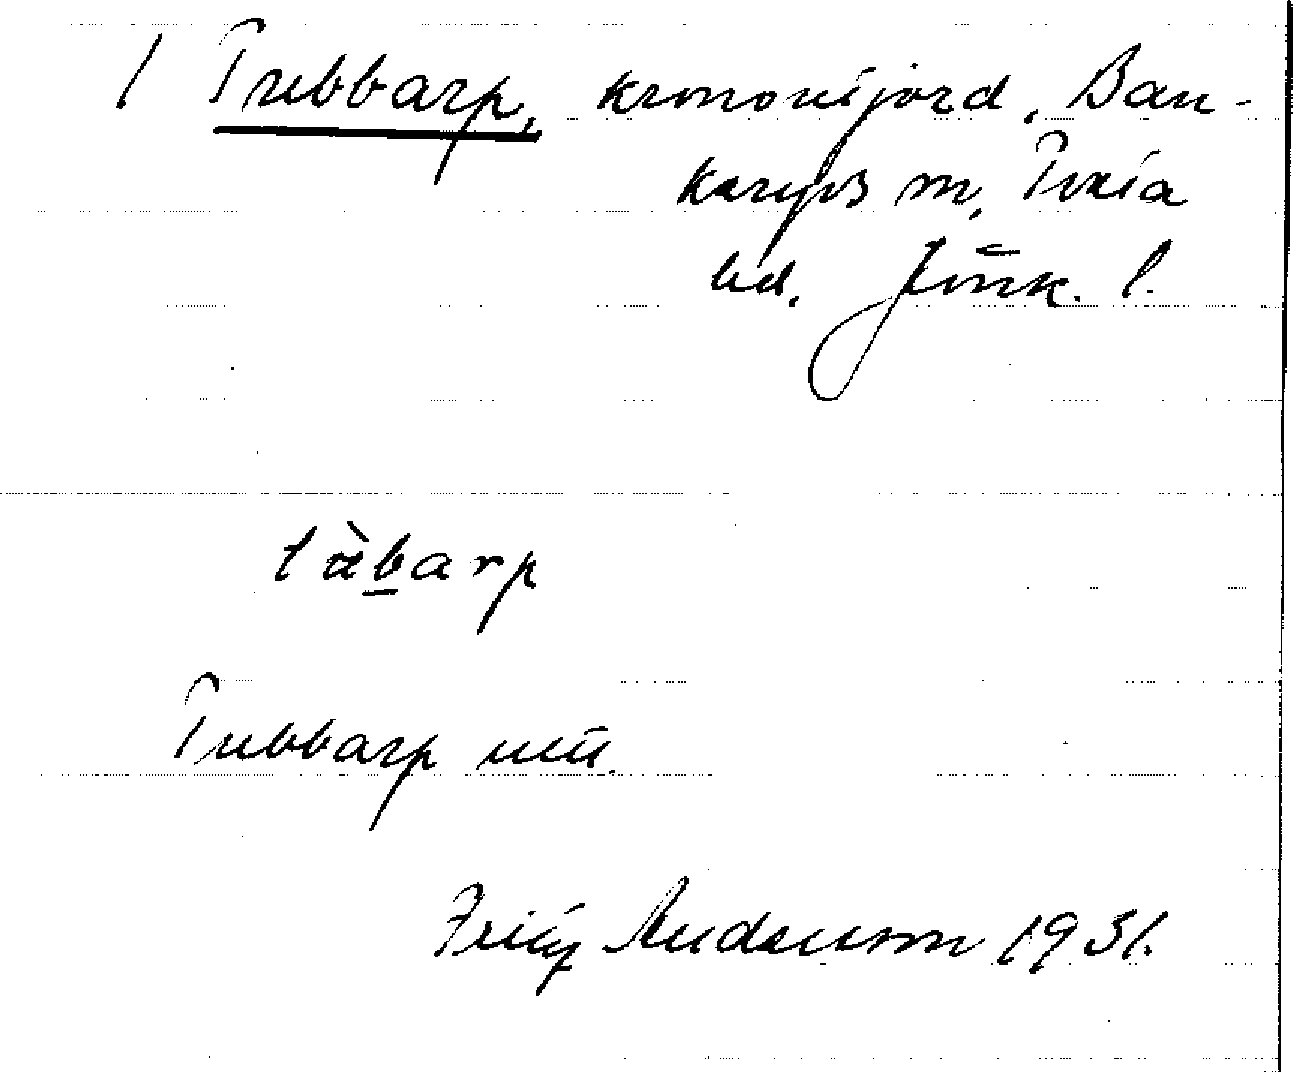 1 Tubbarp, kronomijord, Ban-
karps sn, Tveta
hd. Jönk. l.
tàbarp
Tubbarp
Fritz Andersson 1931.